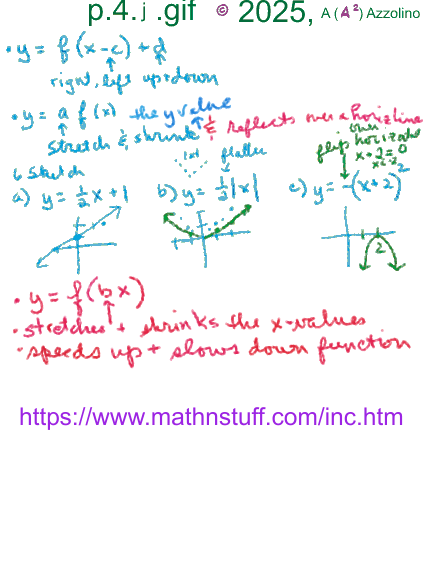 p.4.j.gif © 2025, A (A²) Azzolino
• y = f(x-c) + d
right, left up+down
• y = a f(x) the y value
stretch & shrink & reflects over a horiz line
flip over horizontal
x+2=0
x=-2
6 Sketch |x| flatter
a) y = ½x + 1 b) y = ½|x| c) y = -(x+2)²
2
• y = f(bx)
• stretches + shrinks the x-values
• speeds up + slows down function
https://www.mathnstuff.com/inc.htm